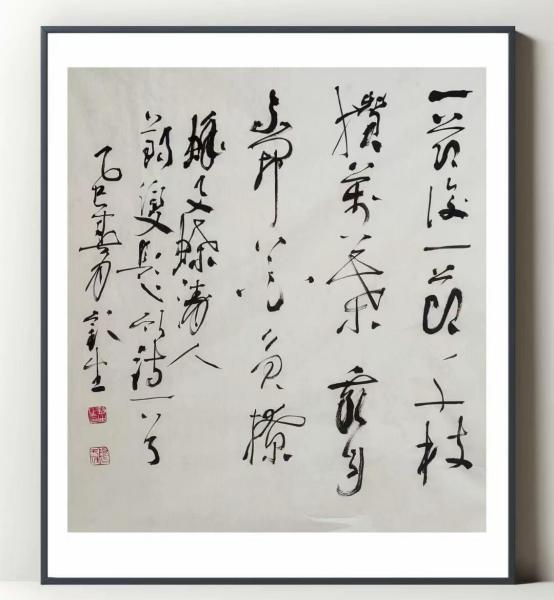 一節復一節千枝
攢萬葉我自
不開花免撩
蜂與蝶清人
鄭燮題竹詩一首
乙巳春月